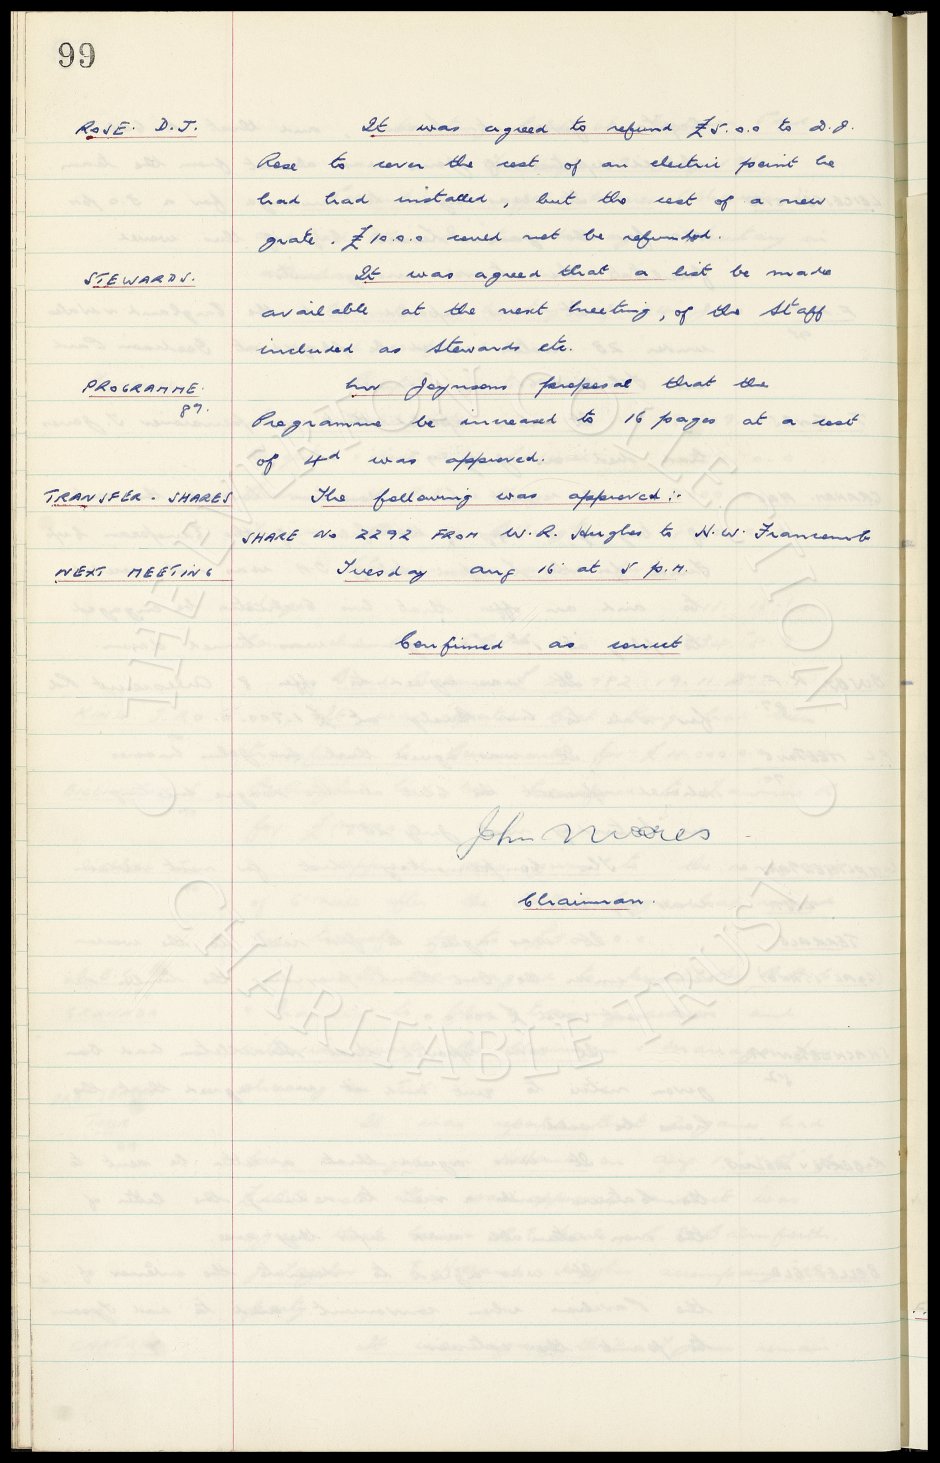 99
ROSE. D.J. It was agreed to refund £5.0.0 to D.J.
Rose to cover the cost of an electric point he
had had installed, but the cost of a new
grate. £10.0.0 could not be refunded.
STEWARDS. It was agreed that a list be made
available at the next meeting, of the Staff
included as Stewards etc.
PROGRAMME. Mr Joynsons proposal that the
89. Programme be increased to 16 pages at a cost
of 4d was approved.
TRANSFER. SHARES The following was approved:-
SHARE No 2292 FROM W.R. Hughes to N.W. Francomb
NEXT MEETING Tuesday Aug 16 at 5 p.m.
Confirmed as correct
John Moores
Chairman.
THE EVERTON COLLECTION
CHARITABLE TRUST